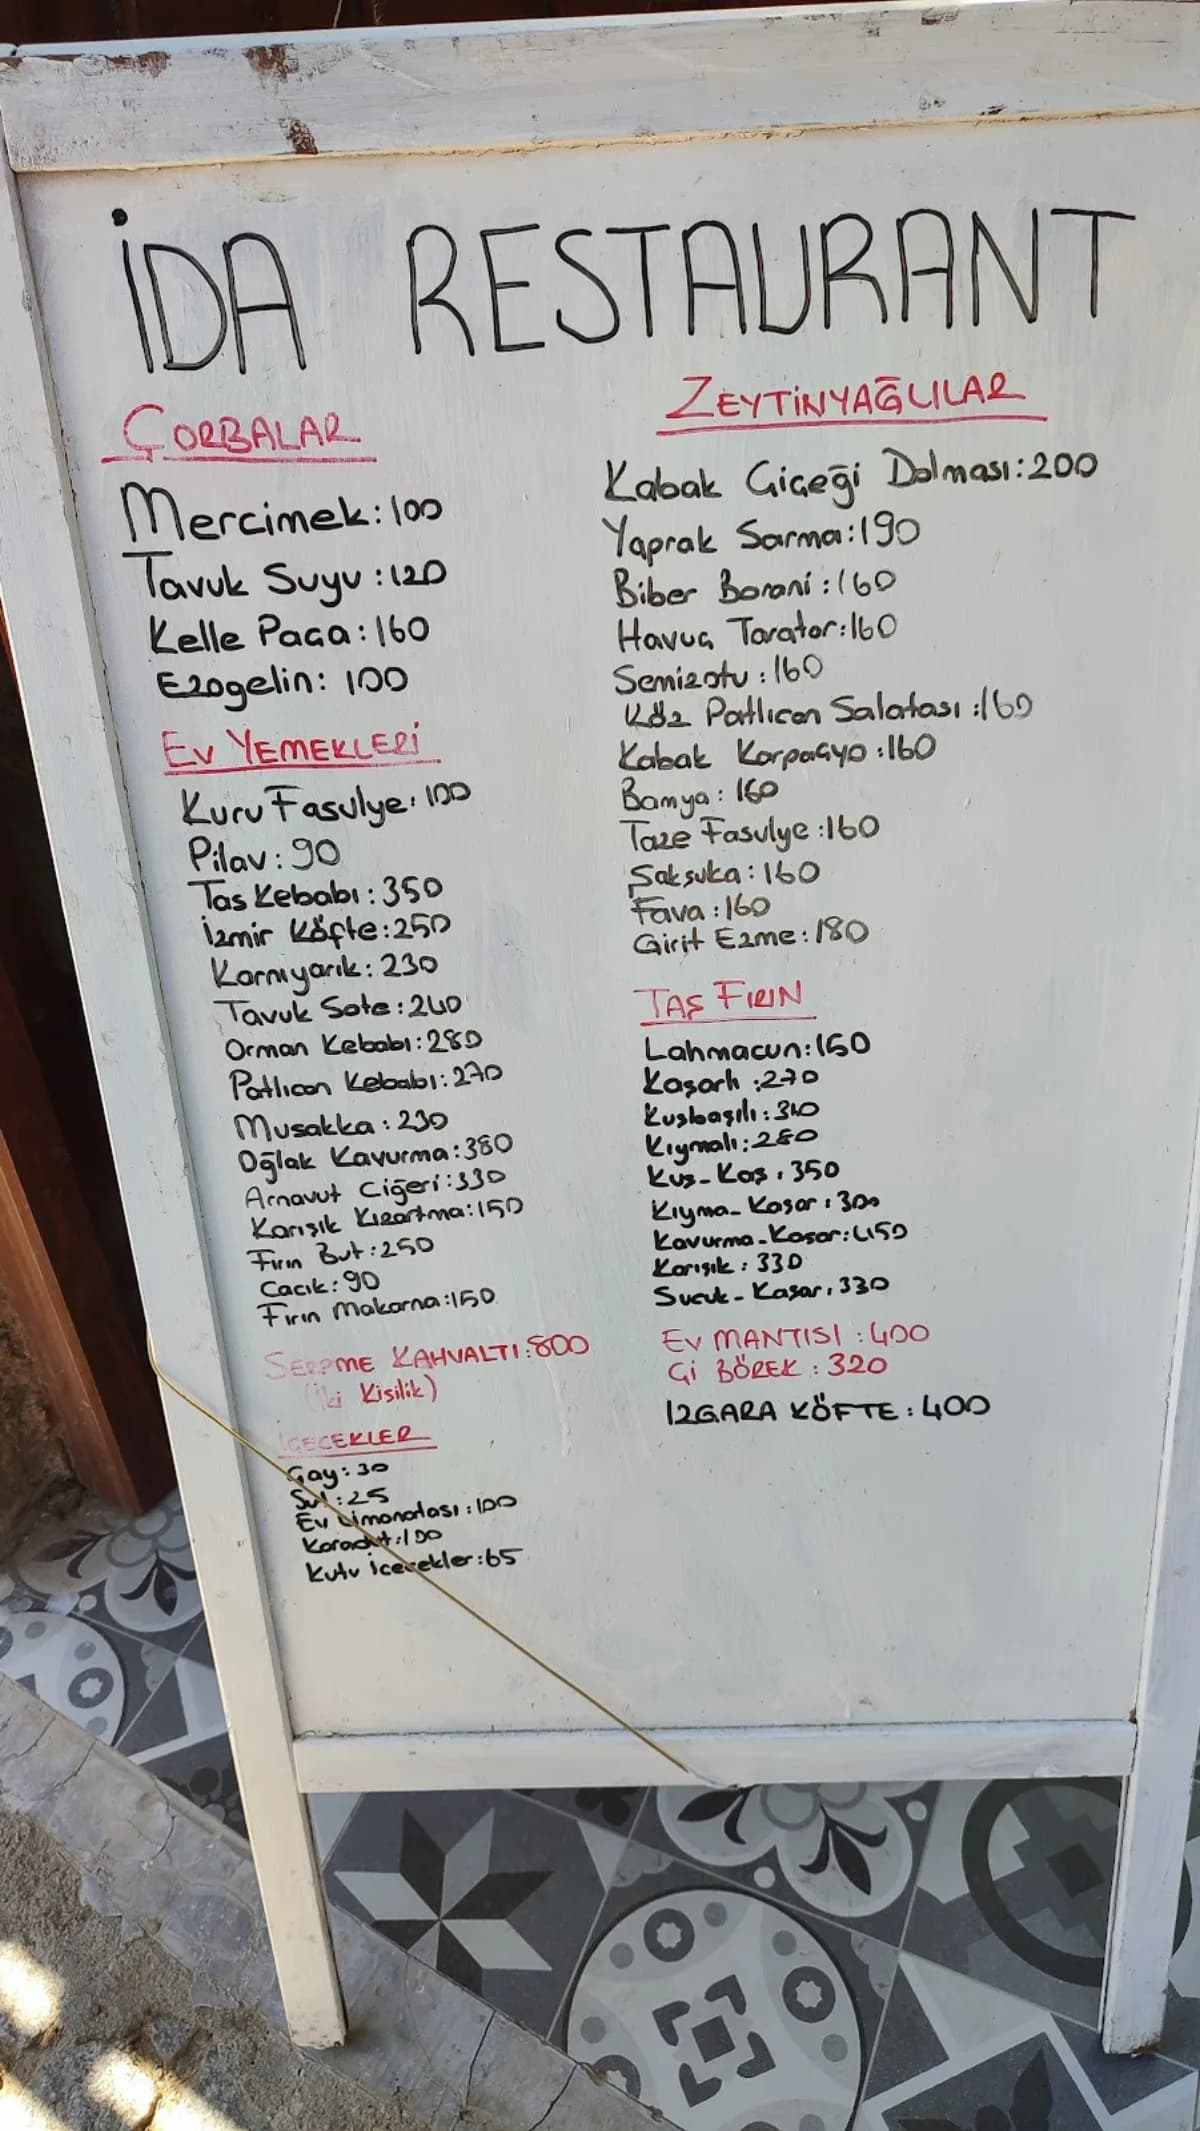 İDA RESTAURANT
ÇORBALAR
Mercimek: 100
Tavuk Suyu: 120
Kelle Paça: 160
Ezogelin: 100
EV YEMEKLERİ
Kuru Fasulye: 100
Pilav: 90
Tas Kebabı: 350
İzmir Köfte: 250
Karnıyarık: 230
Tavuk Sote: 240
Orman Kebabı: 280
Patlıcan Kebabı: 270
Musakka: 230
Oğlak Kavurma: 380
Arnavut Ciğeri: 330
Karışık Kızartma: 150
Fırın But: 250
Cacık: 90
Fırın Makarna: 150
SERPME KAHVALTI: 800
(İki Kişilik)
İÇECEKLER
Çay: 30
Su: 25
Ev Limonatası: 100
Karadut: 100
Kutu İçecekler: 65
ZEYTİNYAĞLILAR
Kabak Çiçeği Dolması: 200
Yaprak Sarma: 190
Biber Borani: 160
Havuç Tarator: 160
Semizotu: 160
Köz Patlıcan Salatası: 160
Kabak Karpaçyo: 160
Bamya: 160
Taze Fasulye: 160
Şakşuka: 160
Fava: 160
Girit Ezme: 180
TAŞ FIRIN
Lahmacun: 150
Kaşarlı: 270
Kuşbaşılı: 340
Kıymalı: 280
Kuş-Kaş: 350
Kıyma-Kaşar: 300
Kavurma-Kaşar: 450
Karışık: 330
Sucuk-Kaşar: 330
EV MANTISI: 400
Çİ BÖREK: 320
IZGARA KÖFTE: 400